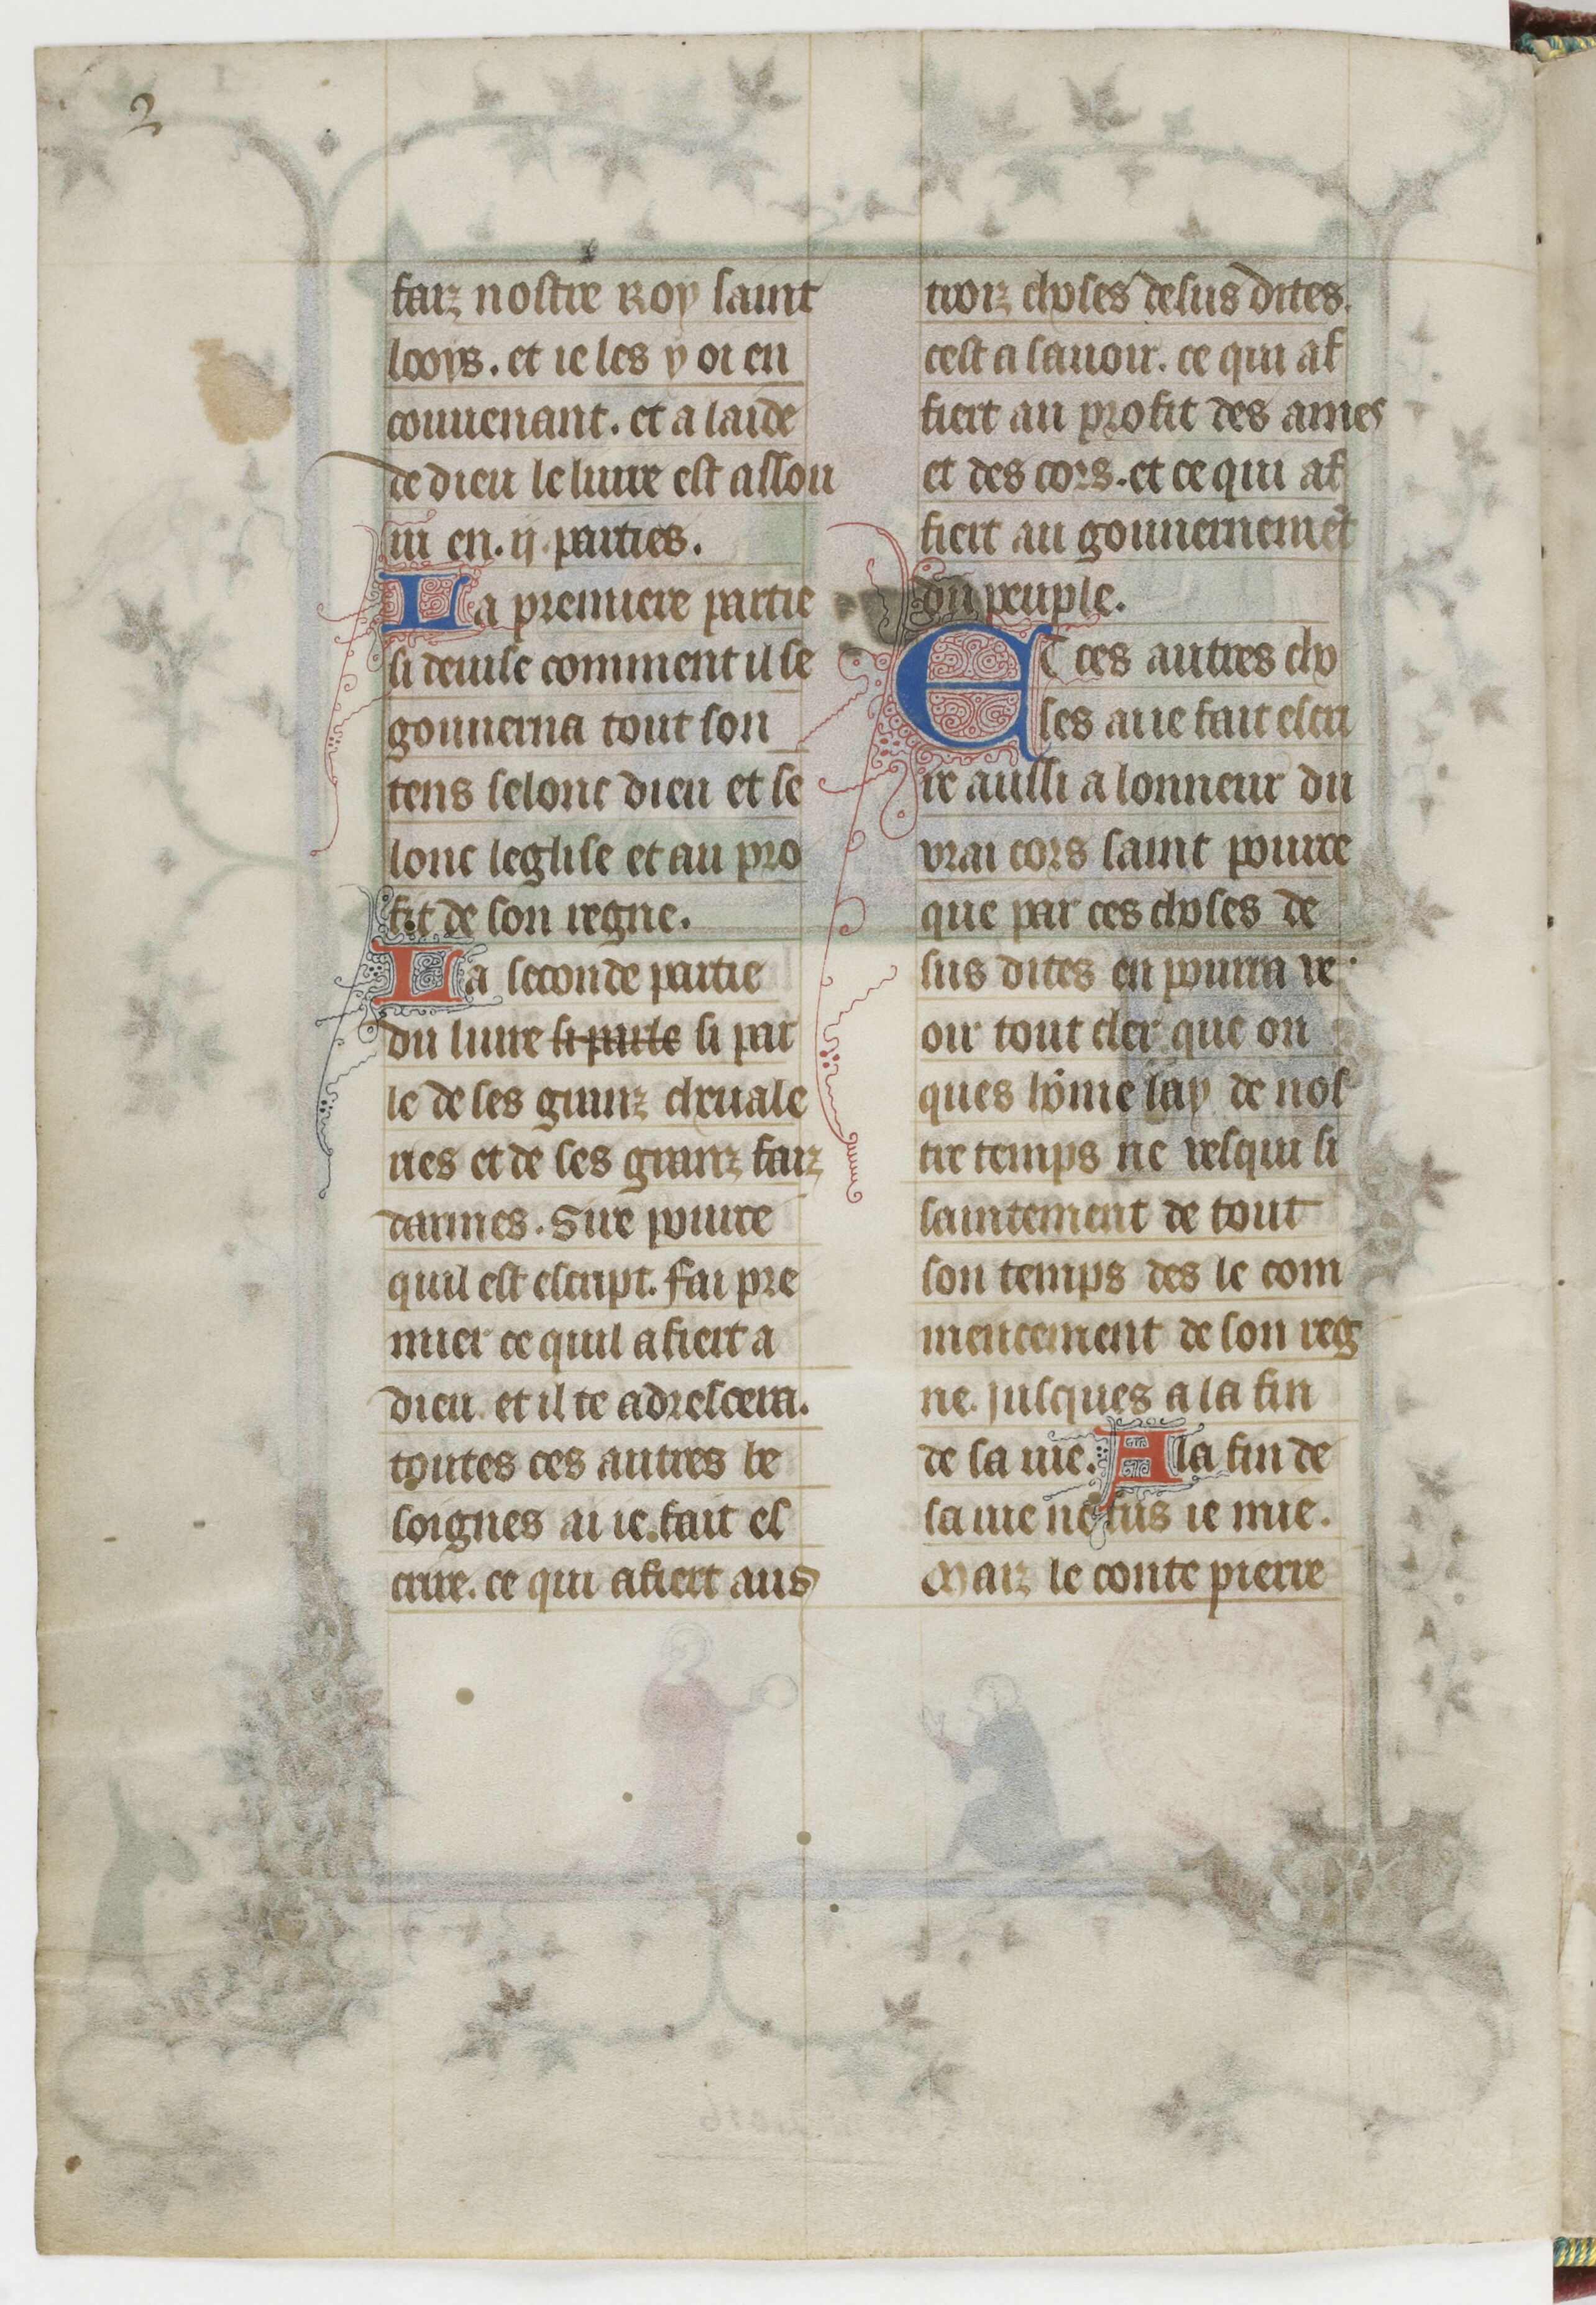 2
faiz nostre Roy saint
looys. et ie les y oi en
couuenant. et a laide
de dieu le liure est assou
ui en .ij. parties.
La premiere partie
si deuise comment il se
gouuerna tout son
tens selonc dieu et se
lonc leglise et au pro
fit de son regne.
La seconde partie
du liure si parle si par
le de ses granz cheuale
ries et de ses granz faiz
darmes. Sire pource
quil est escript. fai pre
mier ce quil afiert a
dieu. et il te adrescera.
toutes ces autres be
soignes ai ie fait es
crire. ce qui afiert aus
troiz choses desus dites.
cest a sauoir. ce qui af
fiert au profit des ames
et des cors. et ce qui af
fiert au gouuernemẽt
du peuple.
ET ces autres cho
ses ai ie fait escri
re aussi a lonneur du
vrai cors saint pource
que par ces choses de
sus dites en pourra ve
oir tout cler que on
ques hõme lay de nos
tre temps ne vesqui si
saintement de tout
son temps des le com
mencement de son reg
ne. jusques a la fin
de sa uie. A la fin de
sa uie ne fus ie mie.
Maiz le conte pierre